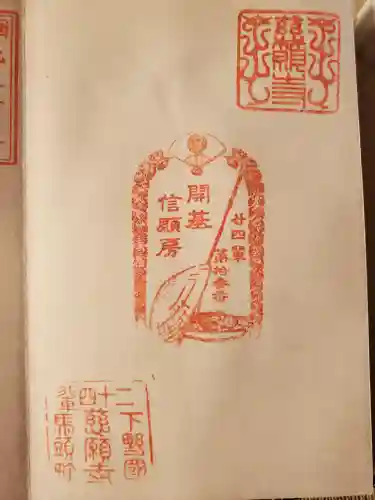 慈願寺
廿四輩
第拾参番
開基
信願房
二下野國
十四慈願寺
輩馬頭町